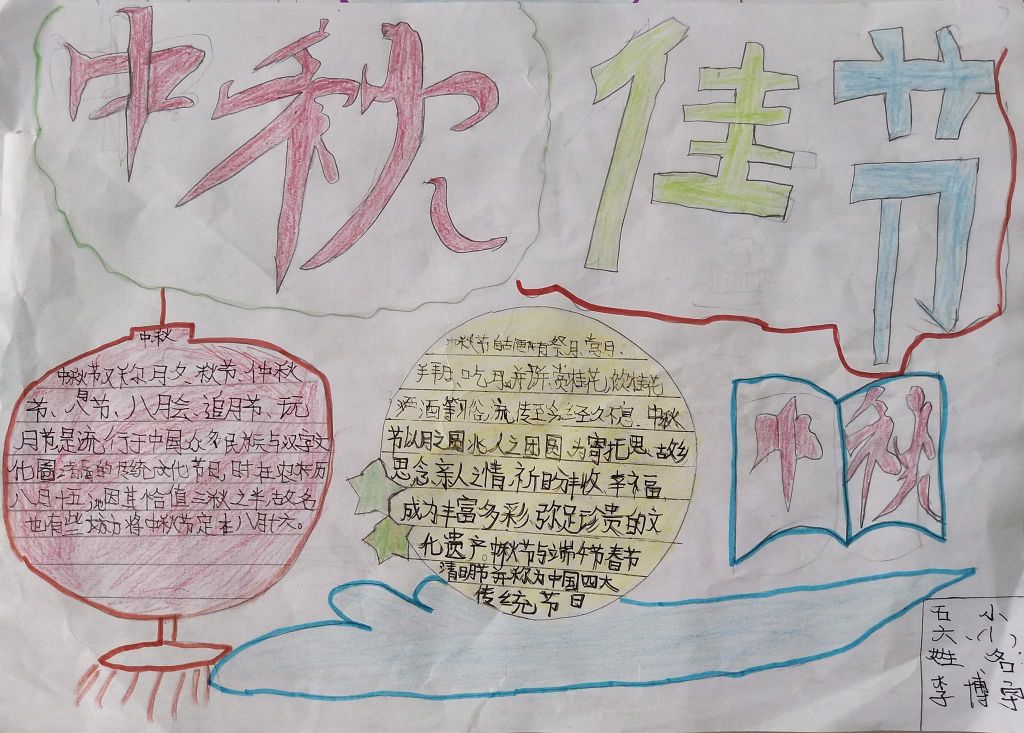 中秋佳节
中秋
中秋节又称月夕、秋节、仲秋
节、八月节、八月会、追月节、玩
月节是流行于中国众多民族与汉字文
化圈诸国的传统文化节日,时在农历
八月十五,因其恰值三秋之半,故名
也有些地方将中秋节定在八月十六。
中秋节自古便有祭月、赏月、
拜月、吃月饼、赏桂花、饮桂花
酒等习俗,流传至今,经久不息。中秋
节以月之圆兆人之团圆,为寄托思、故乡
思念、亲人之情,祈盼丰收、幸福
成为丰富多彩、弥足珍贵的文
化遗产。中秋节与端午节春节
清明节并称为中国四大
传统节日
中秋
五 小
六、(八)
姓 名:
李 博